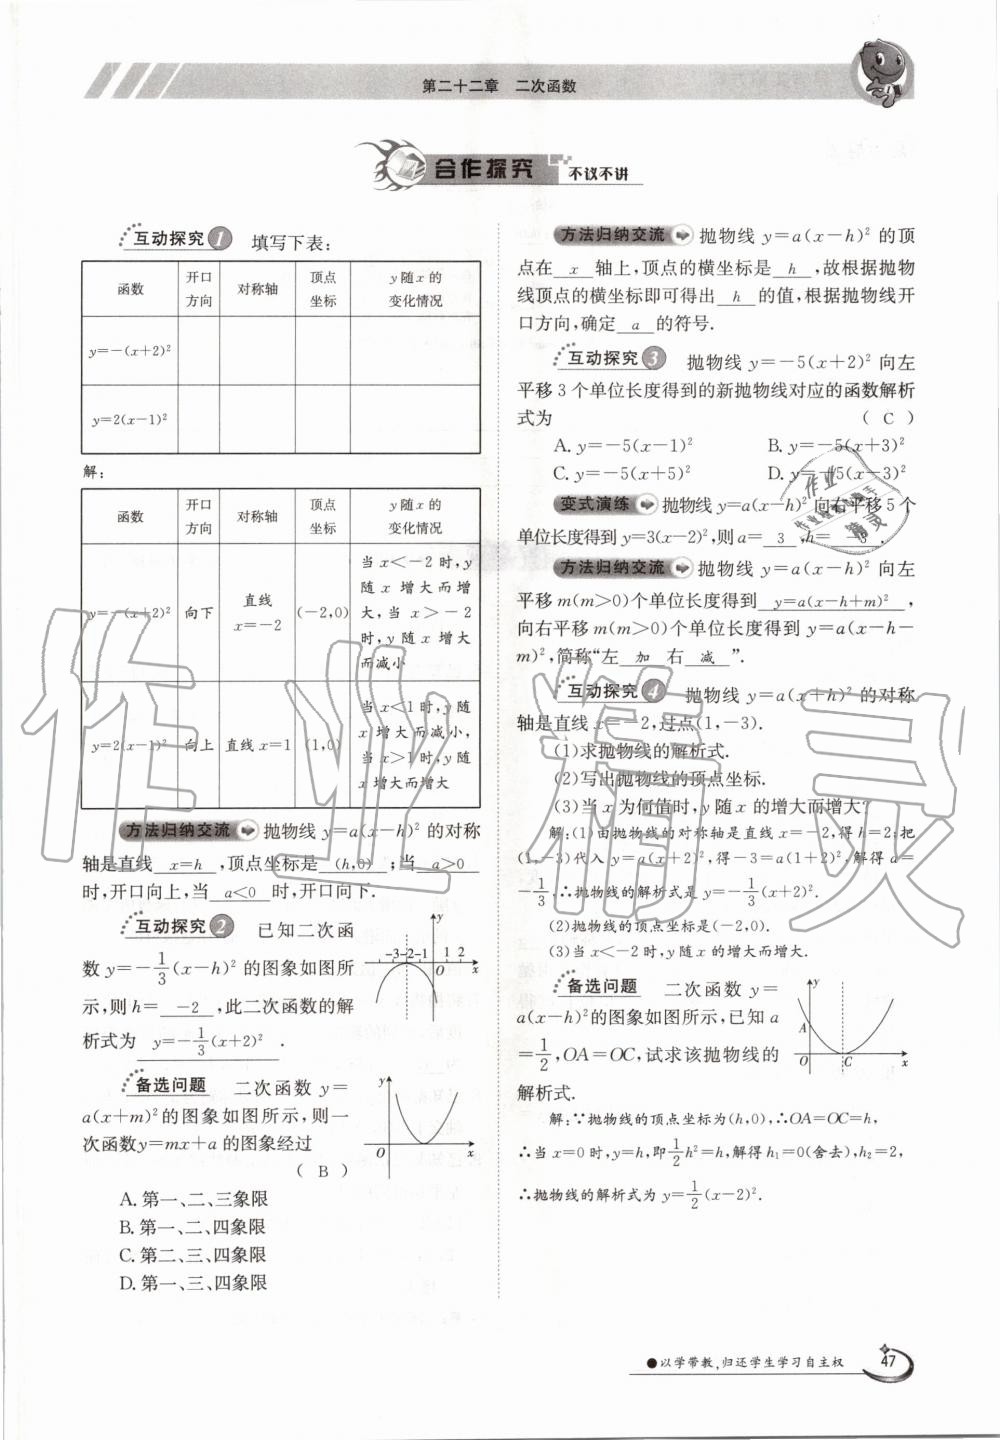 第二十二章 二次函数
合作探究 不议不讲
互动探究1 填写下表:
函数 开口方向 对称轴 顶点坐标 y随x的变化情况
y=-(x+2)²
y=2(x-1)²
解:
函数 开口方向 对称轴 顶点坐标 y随x的变化情况
y=-(x+2)² 向下 直线x=-2 (-2,0) 当x<-2时,y随x增大而增大,当x>-2时,y随x增大而减小
y=2(x-1)² 向上 直线x=1 (1,0) 当x<1时,y随x增大而减小,当x>1时,y随x增大而增大
方法归纳交流 抛物线y=a(x-h)²的对称
轴是直线 x=h ,顶点坐标是 (h,0) ;当 a>0
时,开口向上,当 a<0 时,开口向下.
互动探究2 已知二次函
数y=-1/3(x-h)²的图象如图所
示,则h= -2 ,此二次函数的解
析式为 y=-1/3(x+2)² .
y
-3-2-1 1 2
O x
备选问题 二次函数y=
a(x+m)²的图象如图所示,则一
次函数y=mx+a的图象经过
( B )
y
O x
A.第一、二、三象限
B.第一、二、四象限
C.第二、三、四象限
D.第一、三、四象限
方法归纳交流 抛物线y=a(x-h)²的顶
点在 x 轴上,顶点的横坐标是 h ,故根据抛物
线顶点的横坐标即可得出 h 的值,根据抛物线开
口方向,确定 a 的符号.
互动探究3 抛物线y=-5(x+2)²向左
平移3个单位长度得到的新抛物线对应的函数解析
式为 ( C )
A.y=-5(x-1)² B.y=-5(x+3)²
C.y=-5(x+5)² D.y=-5(x-3)²
变式演练 抛物线y=a(x-h)²向右平移5个
单位长度得到y=3(x-2)²,则a= 3 ,h= -3 .
方法归纳交流 抛物线y=a(x-h)²向左
平移m(m>0)个单位长度得到 y=a(x-h+m)² ,
向右平移m(m>0)个单位长度得到y=a(x-h-
m)²,简称“左 加 右 减 ”.
互动探究4 抛物线y=a(x+h)²的对称
轴是直线x=-2,过点(1,-3).
(1)求抛物线的解析式.
(2)写出抛物线的顶点坐标.
(3)当x为何值时,y随x的增大而增大?
解:(1)由抛物线的对称轴是直线x=-2,得h=2;把
(1,-3)代入y=a(x+2)²,得-3=a(1+2)²,解得a=
-1/3,∴抛物线的解析式是y=-1/3(x+2)².
(2)抛物线的顶点坐标是(-2,0).
(3)当x<-2时,y随x的增大而增大.
备选问题 二次函数y=
a(x-h)²的图象如图所示,已知a
=1/2,OA=OC,试求该抛物线的
解析式.
y
A
O C x
解:∵抛物线的顶点坐标为(h,0),∴OA=OC=h,
∴当x=0时,y=h,即1/2h²=h,解得h₁=0(舍去),h₂=2,
∴抛物线的解析式为y=1/2(x-2)².
作业精灵
●以学带教,归还学生学习自主权 47